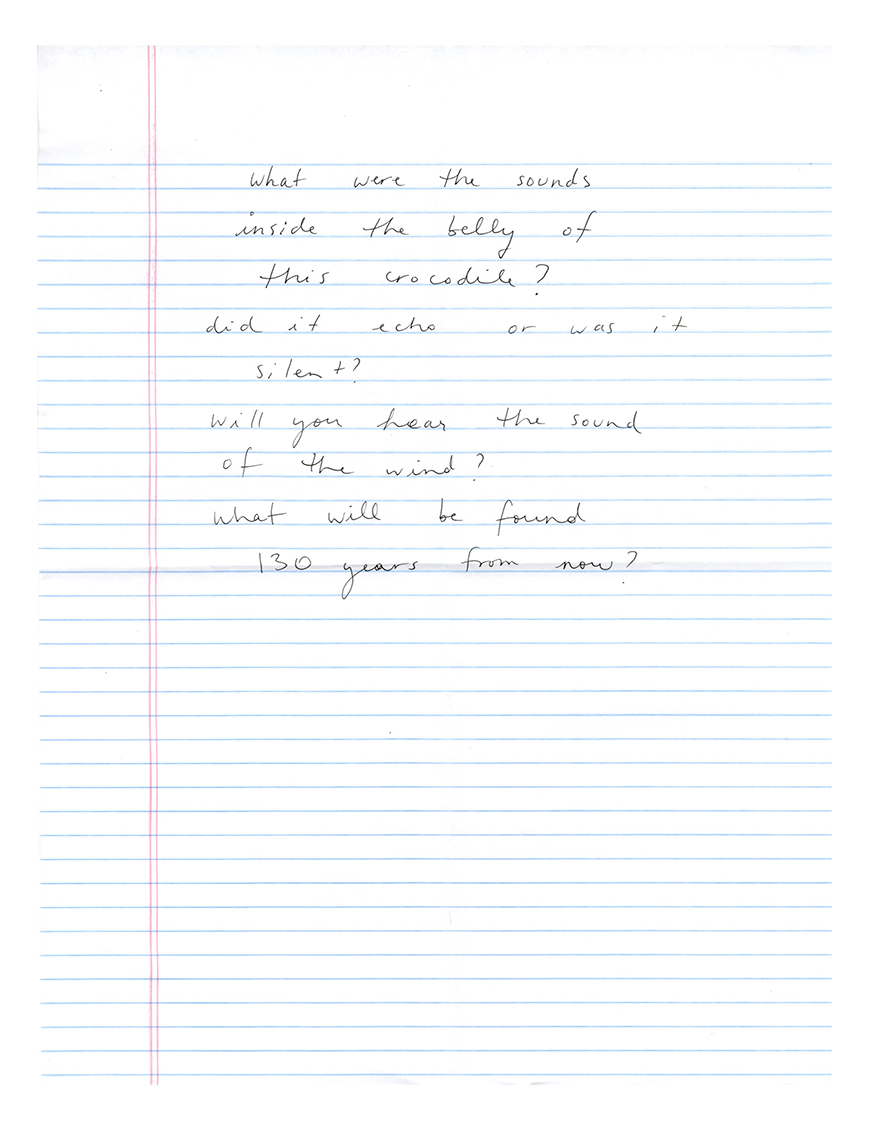 what were the sounds
inside the belly of
this crocodile?
did it echo or was it
silent?
will you hear the sound
of the wind?
what will be found
130 years from now?